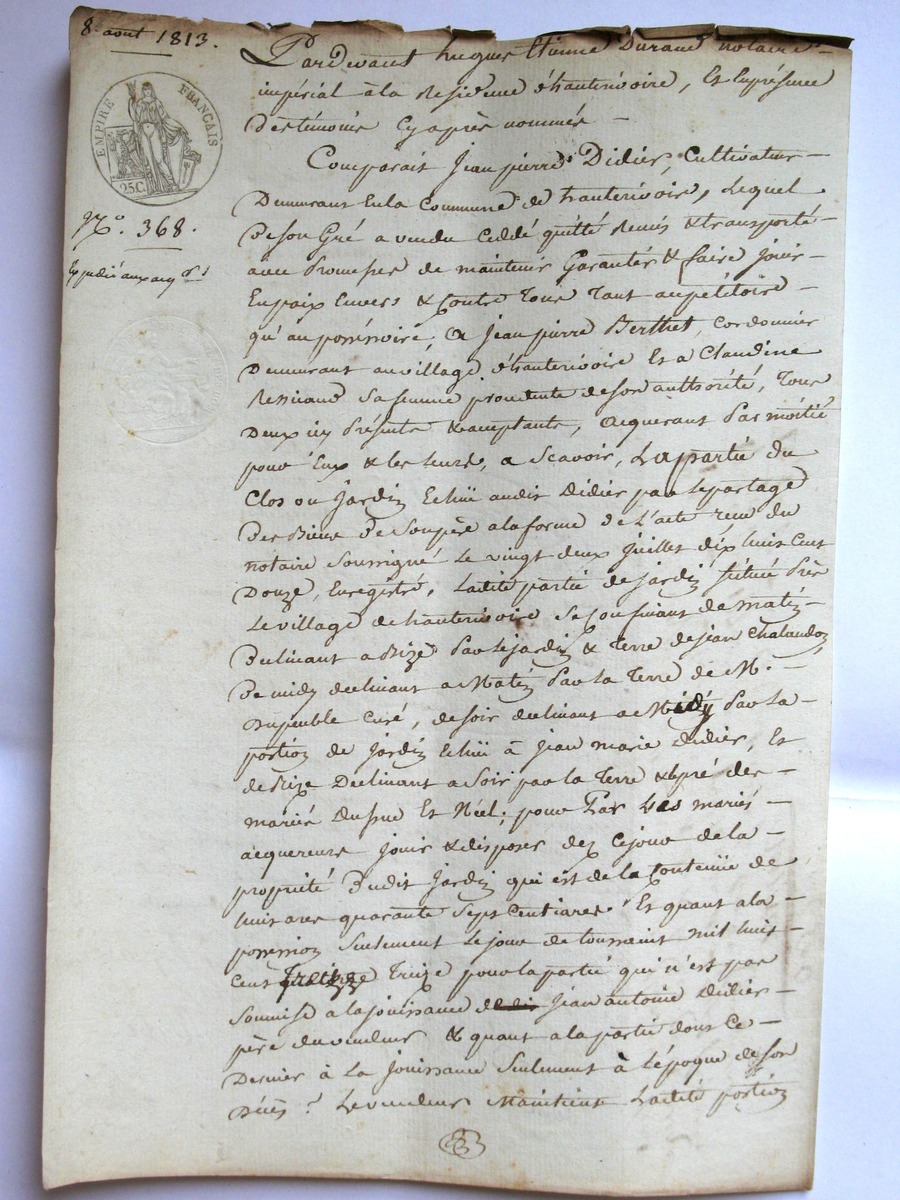 8 août 1813.
EMPIRE FRANÇAIS
25.C.
N.° 368.
Expédié aux acq.rs
Pardevant hugues Etienne Durand notaire
impérial à la Residence d'hauterivoire, Et En présence
Des témoins Cy après nommés
Comparait Jean pierre Didier, Cultivateur
Demeurant En la Commune de hauterivoire, Lequel
De son Gré a vendu Ceddé quitté Remis & transporté
avec Promesses de maintenir Garantir & faire jouir
En paix Envers & Contre Tous Tant au pétitoire
qu'au possessoire, a Jean pierre Berthet, cordonnier
Demeurant au village d'hauterivoire Et a Claudine
sa femme procedente de son authorité, Tous
Deux icy Présents & acceptants, acquerant Par moitié
pour Eux & les leurs, a Scavoir, La partie du
Clos ou Jardin Echüe audit Didier par le partage
Des Biens De Son père a la forme de L'acte recu du
notaire Soussigné Le vingt deux Juillet dix huit Cent
Douze, Enregistré, Ladite partie de jardin située Près
Le village de hauterivoire Se Confinant de matin
Déclinant a Bize Par le jardin & Terre de jean Chalandon,
De midy declinant a Matin Par La Terre de M.
Dupeuble Curé, de soir declinant a Midy Par La
portion de Jardin Echüe à Jean marie Didier, Et
de Bize Declinant a Soir par la Terre & pré des
mariés Et Néel; pour Par Les mariés
acquereurs jouir & disposer dez Ce jour de la
propriété Dudit Jardin qui est de la Contenüe de
huit ares quarante Sept Centiares. Et quant a la
possession Seulement Le jour de toussaint mil huit
Cent Treize pour la partie qui n'est pas
Soumise a la jouissance Jean antoine Didier
père du vendeur & quant a la partie dont Ce
Dernier à La Jouissance Seulement à L'époque de son
Décès. Le vendeur Maintient Ladite portion